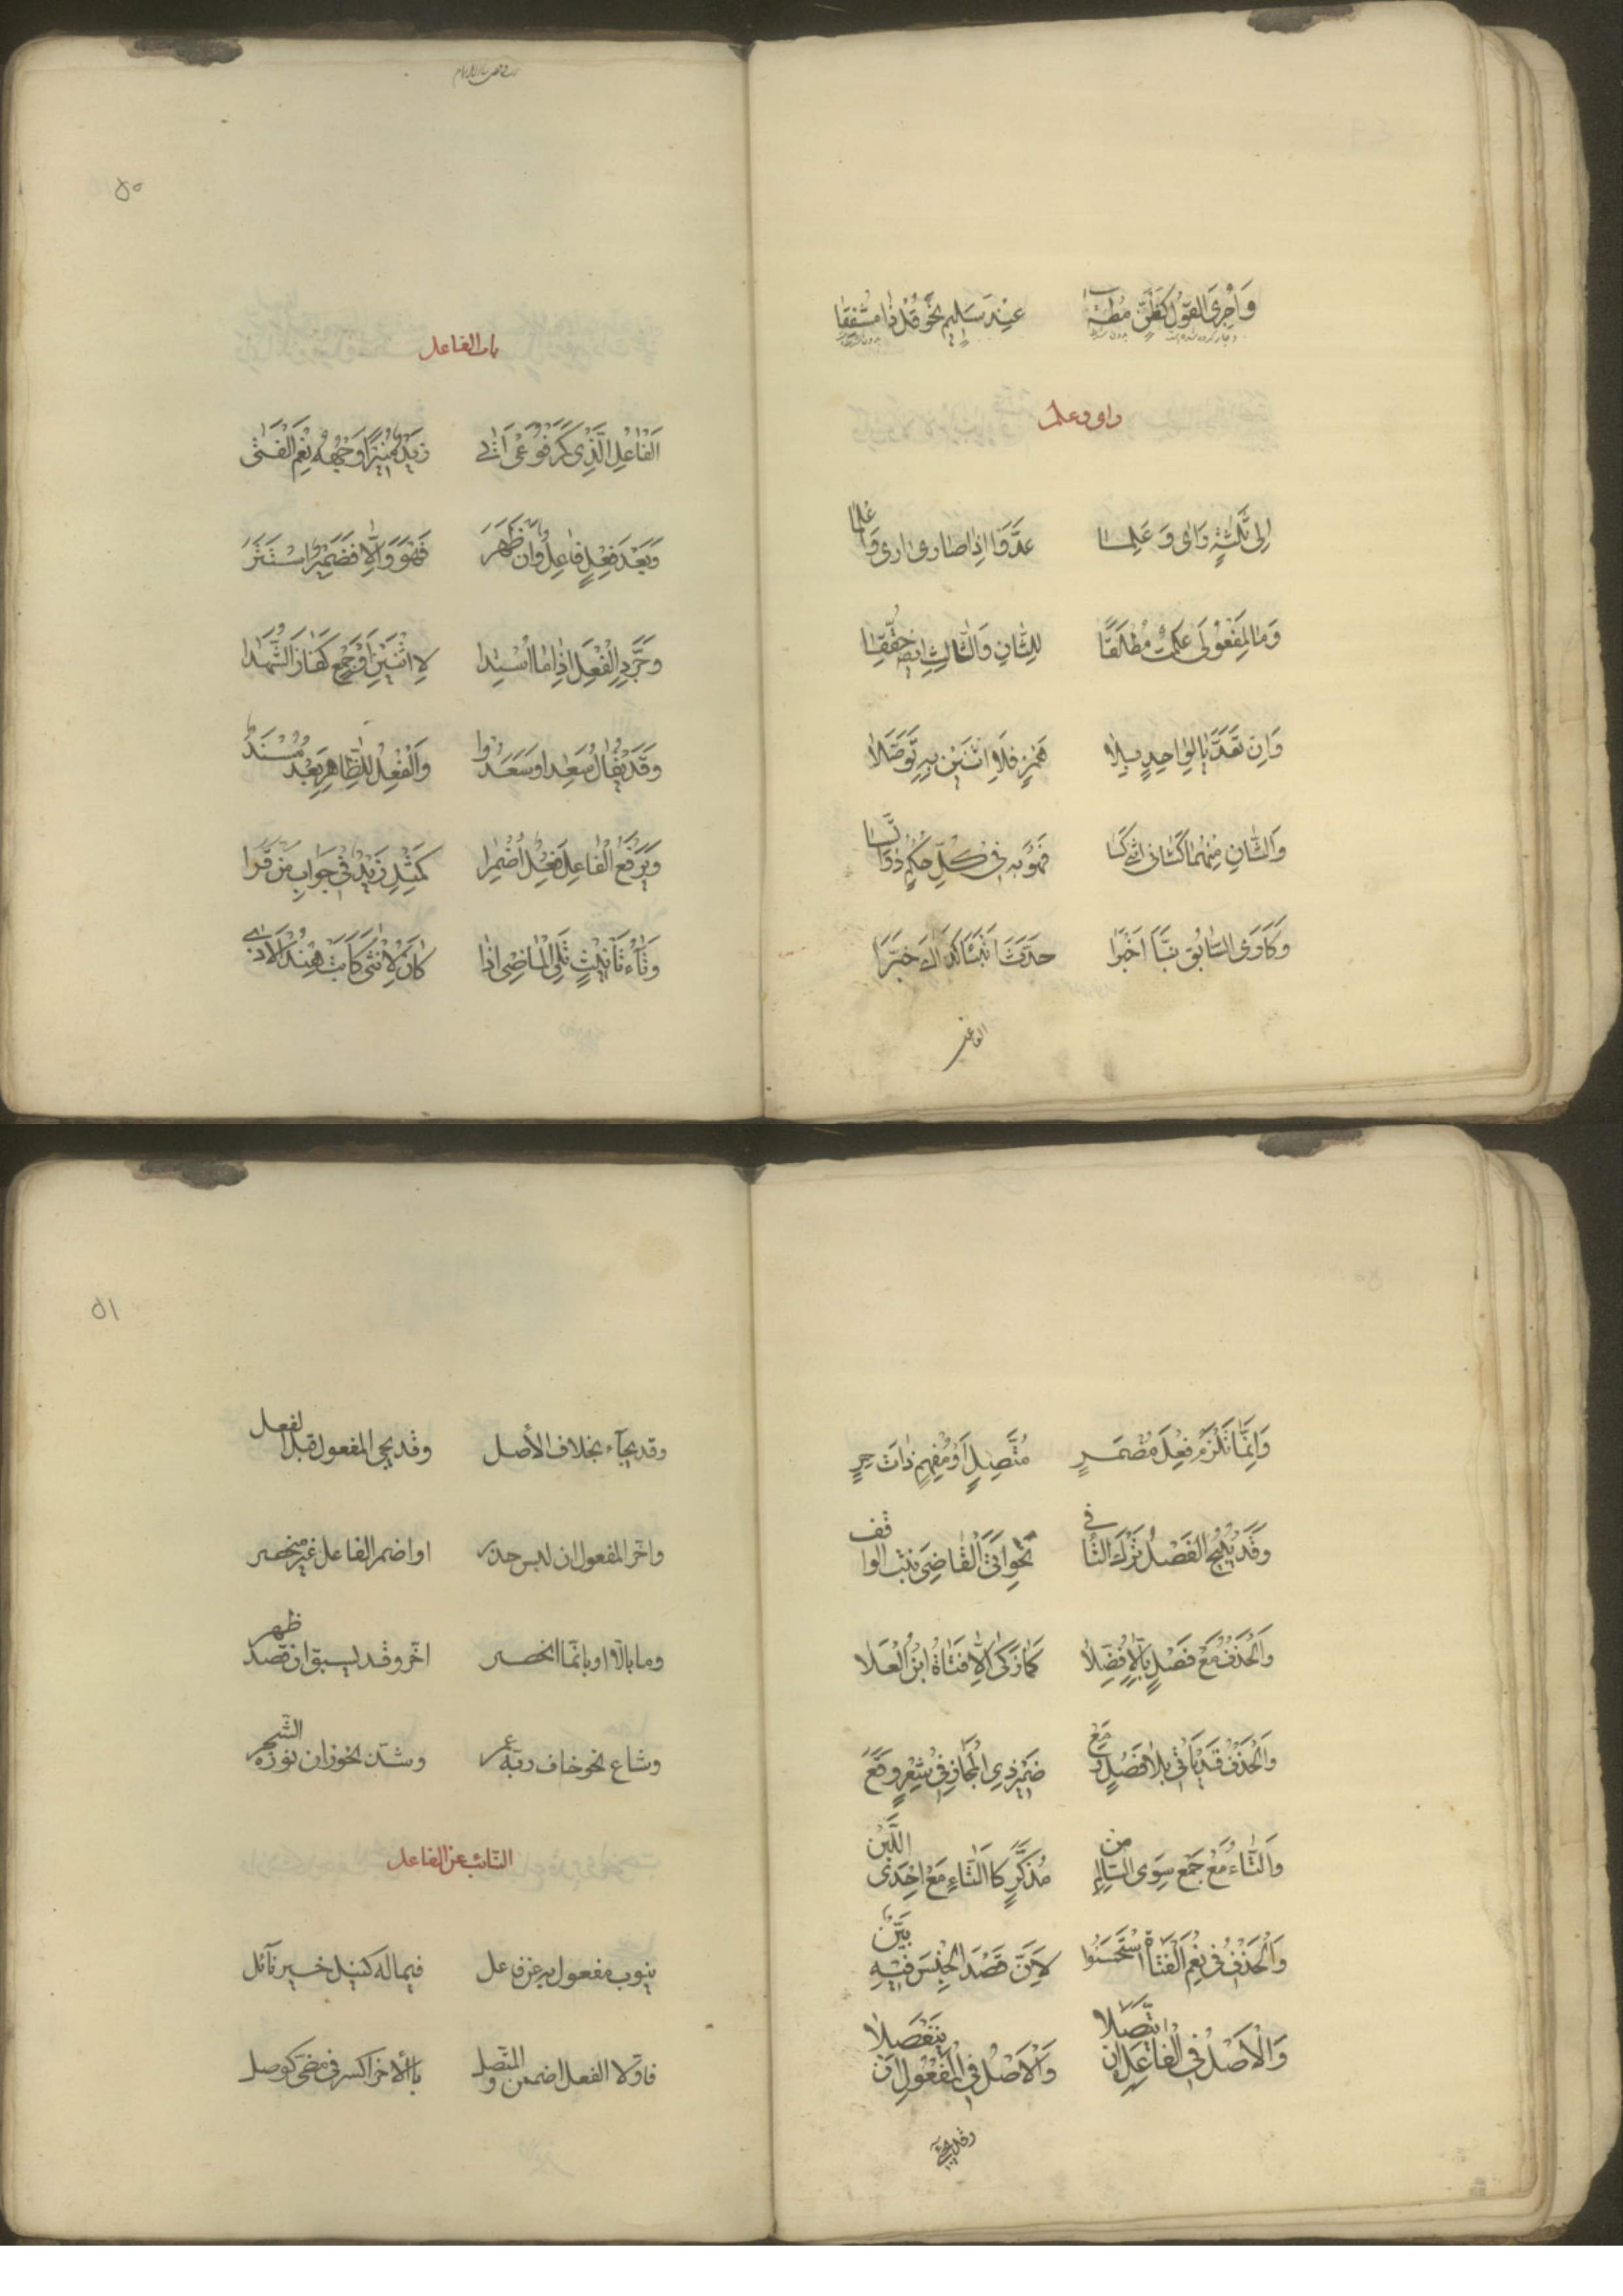 وَاُجْرِىَ القَوْلُ كَظَنٍّ مُطْلَقًا عِنْدَ سَلِيمٍ نَحْوُ قُلْ ذَا مُشْفِقًا
ارى وعلم
اِلى ثَلٰثَةٍ رَاٰى وَ عَلِمَا عَدَّوْا اِذَا صَارَا ارى وَاَعْلَمَا
وَمَا لِمَفْعُولَى عَلِمْتُ مُطْلَقًا لِلثَّانِ وَالثَّالِثِ ايضًا حُقِّقَا
وَاِنْ تَعَدَّيَا لِوَاحِدٍ بِلَا هَمْزٍ فَلِاثْنَيْنِ بِهِ تَوَصَّلَا
وَالثَّانِ مِنْهُمَا كَثَانِى اثْنَىْ كَسَا فَهُوَ بِهِ فِى كُلِّ حُكْمٍ ذُو ائْتِسَا
وَكَاَرَى السَّابِقِ نَبَّأَ اَخْبَرَا حَدَّثَ اَنْبَأَ كَذَاكَ خَبَّرَا
الفاعل
٥٠
باب الفاعل
اَلفَاعِلُ الَّذِى كَمَرْفُوعَىْ اَتٰى زَيْدٌ مُنِيرًا وَجْهُهُ نِعْمَ الْفَتٰى
وَبَعْدَ فِعْلٍ فَاعِلٌ فَاِنْ ظَهَرَ فَهُوَ وَاِلَّا فَضَمِيرٌ اسْتَتَرَ
وَجَرِّدِ الْفِعْلَ اِذَا مَا اُسْنِدَا لِاثْنَيْنِ اَوْ جَمْعٍ كَفَازَ الشُّهَدَا
وَقَدْ يُقَالُ سَعِدَا وَسَعِدُوا وَالْفِعْلُ لِلظَّاهِرِ بَعْدُ مُسْنَدٌ
وَيَرْفَعُ الْفَاعِلَ فِعْلٌ اُضْمِرَا كَمِثْلِ زَيْدٌ فِى جَوَابِ مَنْ قَرَا
وَتَاءُ تَأْنِيثٍ تَلِى الْمَاضِى اِذَا كَانَ لِاُنْثٰى كَاَبَتْ هِنْدُ الْاَذٰى
وَاِنَّمَا تَلْزَمُ فِعْلَ مُضْمَرٍ مُتَّصِلٍ اَوْ مُفْهِمٍ ذَاتَ حِرٍ
وَقَدْ يُبِيحُ الفَصْلُ تَرْكَ التَّاءِ فِى نَحْوِ اَتَى الْقَاضِىَ بِنْتُ الوَاقِفِ
وَالْحَذْفُ مَعْ فَصْلٍ بِاِلَّا فُضِّلَا كَمَا زَكٰى اِلَّا فَتَاةُ ابْنِ الْعَلَا
وَالْحَذْفُ قَدْ يَأْتِى بِلَا فَصْلٍ وَمَعْ ضَمِيرِ ذِى الْمَجَازِ فِى شِعْرٍ وَقَعَ
وَالتَّاءُ مَعْ جَمْعٍ سِوَى السَّالِمِ مِنْ مُذَكَّرٍ كَالتَّاءِ مَعْ اِحْدَى اللَّبِنْ
وَالْحَذْفَ فِى نِعْمَ الْفَتَاةُ اسْتَحْسَنُوا لِاَنَّ قَصْدَ الْجِنْسِ فِيهِ بَيِّنٌ
وَالْاَصْلُ فِى الْفَاعِلِ اَنْ يَتَّصِلَا وَالْاَصْلُ فِى الْمَفْعُولِ اَنْ يَنْفَصِلَا
وقد يجئ
٥١
وقد يجآء بخلاف الأصل وقد يجى المفعول قبل الفعل
واخّر المفعول ان لبس حذر او اضمر الفاعل غير منحصر
وما بالّا او بانّما انحصر اخّر وقد يسبق ان قصد ظهر
وشاع نحو خاف ربّه عمر وشذّ نحو زان نوره الشّجر
النّائب عن الفاعل
ينوب مفعول به عن فاعل فيما له كنيل خير نآئل
فاوّل الفعل اضممن والمتّصل بالأخر اكسر فى مضىّ كوصل